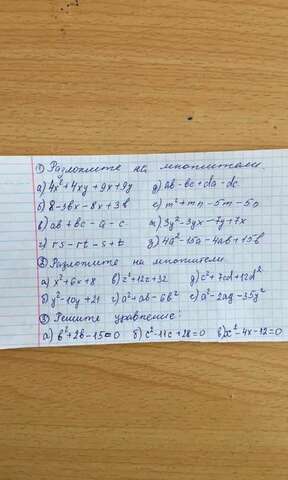 ① Разложите на множители.
а) 4x²+4xy+9x+9y д) ab-bc+da-dc
б) 8-3bx-8x+3b е) m²+mn-5m-5n
в) ab+bc-a-c ж) 3y²-3yx-7y+7x
г) rs-rt-s+t з) 4a²-15a-4ab+15b
② Разложите на множители.
а) x²+6x+8 в) z²+12z+32 д) c²+7cd+12d²
б) y²-10y+21 г) a²+ab-6b² е) a²-2ay-35y²
③ Решите уравнение:
а) b²+2b-15=0 б) c²-11c+28=0 в) x²-4x-12=0